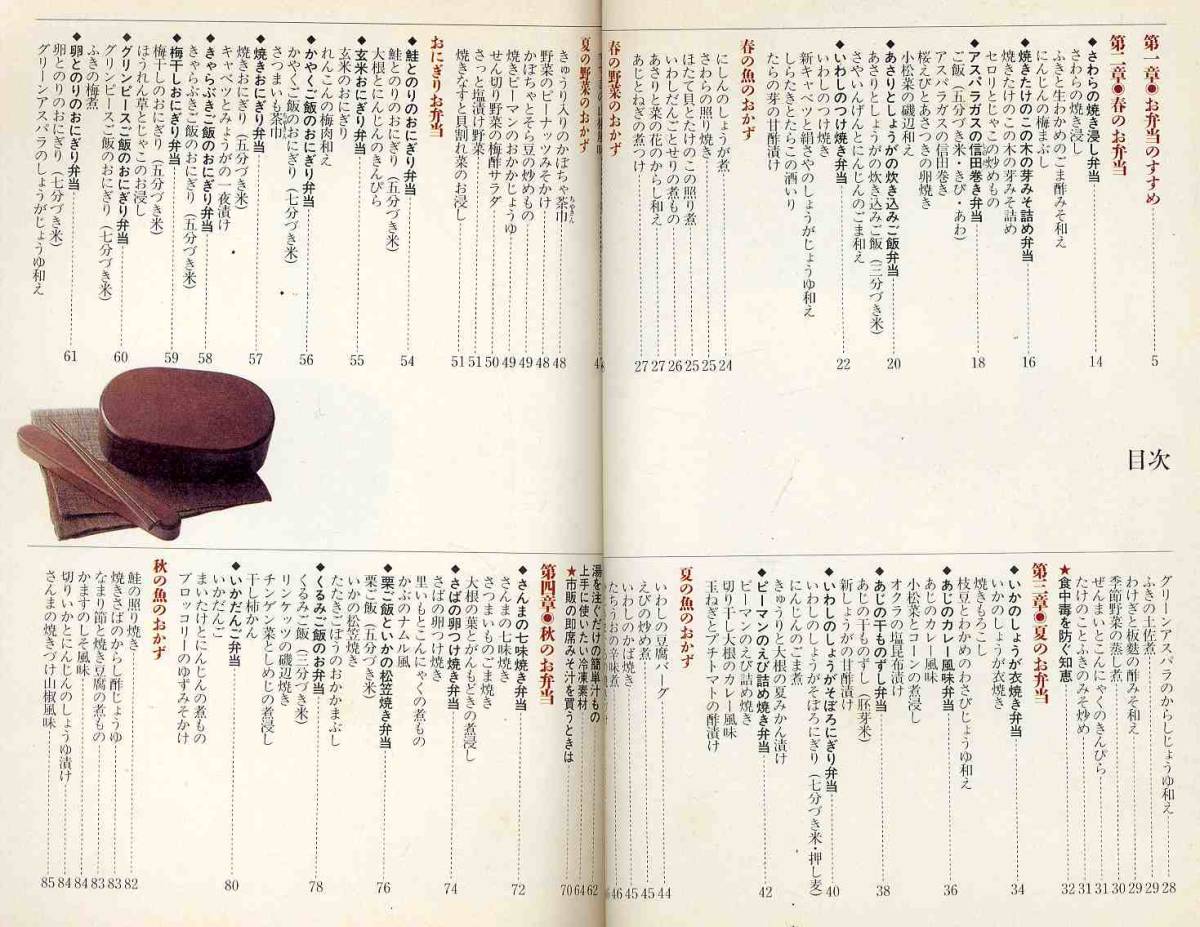 目次
第一章◉お弁当のすすめ 5
第二章◉春のお弁当
◆さわらの焼き浸し弁当 14
さわらの焼き浸し
ふきと生わかめのごま酢みそ和え
にんじんの梅まぶし
◆焼きたけのこの木の芽みそ詰め弁当 16
焼きたけのこの木の芽みそ詰め
セロリとじゃこの炒めもの
◆アスパラガスの信田巻き弁当 18
ご飯（五分づき米・きび・あわ）
アスパラガスの信田巻き
桜えびとあさつきの卵焼き
小松菜の磯辺和え
◆あさりとしょうがの炊き込みご飯弁当 20
あさりとしょうがの炊き込みご飯（三分づき米）
さやいんげんとにんじんのごま和え
◆いわしのつけ焼き弁当 22
いわしのつけ焼き
新キャベツと絹さやのしょうがじょうゆ和え
しらたきとたらこの酒いり
たらの芽の甘酢漬け
春の魚のおかず
にしんのしょうが煮 24
さわらの照り焼き 25
ほたて貝とたけのこの照り煮 25
いわしだんごとせりの煮もの 26
あさりと菜の花のからし和え 27
あじとねぎの煮つけ 27
春の野菜のおかず
グリーンアスパラのからしじょうゆ和え 28
ふきの土佐煮 29
わけぎと板麩の酢みそ和え 29
季節野菜の蒸し煮 30
ぜんまいとこんにゃくのきんぴら 31
たけのことふきのみそ炒め 31
★食中毒を防ぐ知恵 32
第三章◉夏のお弁当
◆いかのしょうが衣焼き弁当 34
いかのしょうが衣焼き
焼きもろこし
枝豆とわかめのわさびじょうゆ和え
◆あじのカレー風味弁当 36
あじのカレー風味
小松菜とコーンの煮浸し
オクラの塩昆布漬け
◆あじの干ものずし弁当 38
あじの干ものずし（胚芽米）
新しょうがの甘酢漬け
◆いわしのしょうがそぼろにぎり弁当 40
いわしのしょうがそぼろにぎり（七分づき米・押し麦）
にんじんのごま煮
きゅうりと大根の夏みかん漬け
◆ピーマンのえび詰め焼き弁当 42
ピーマンのえび詰め焼き
切り干し大根のカレー風味
玉ねぎとプチトマトの酢漬け
夏の魚のおかず
いわしの豆腐バーグ 44
えびの炒め煮 45
いわしのかば焼き 45
たちうおの辛味煮 46
夏の野菜のおかず
きゅうり入りのかぼちゃ茶巾 48
野菜のピーナッツみそかけ 48
かぼちゃとそら豆の炒めもの 49
焼きピーマンのおかかじょうゆ 49
せん切り野菜の梅酢サラダ 50
さっと塩漬け野菜 51
焼きなすと貝割れ菜のお浸し 51
おにぎりお弁当
◆鮭とのりのおにぎり弁当 54
鮭とのりのおにぎり（五分づき米）
大根とにんじんのきんぴら
◆玄米おにぎり弁当 55
玄米のおにぎり
れんこんの梅肉和え
◆かやくご飯のおにぎり弁当 56
かやくご飯のおにぎり（七分づき米）
さつまいも茶巾
◆焼きおにぎり弁当 57
焼きおにぎり（五分づき米）
キャベツとみょうがの一夜漬け
◆きゃらぶきご飯のおにぎり弁当 58
きゃらぶきご飯のおにぎり（五分づき米）
◆梅干しおにぎり弁当 59
梅干しのおにぎり（五分づき米）
ほうれん草とじゃこのお浸し
◆グリンピースご飯のおにぎり弁当 60
グリンピースご飯のおにぎり（七分づき米）
ふきの梅煮
◆卵とのりのおにぎり弁当 61
卵とのりのおにぎり（七分づき米）
グリーンアスパラのしょうがじょうゆ和え
湯を注ぐだけの簡単汁もの 62
上手に使いたい冷凍素材 64
★市販の即席みそ汁を買うときは 70
第四章◉秋のお弁当
◆さんまの七味焼き弁当 72
さんまの七味焼き
さつまいものごま焼き
大根の葉とがんもどきの煮浸し
◆さばの卵つけ焼き弁当 74
さばの卵つけ焼き
里いもとこんにゃくの煮もの
かぶのナムル風
◆栗ご飯といかの松笠焼き弁当 76
栗ご飯（五分づき米）
いかの松笠焼き
たたきごぼうのおかかまぶし
◆くるみご飯のお弁当 78
くるみご飯（三分づき米）
リンケッツの磯辺焼き
チンゲン菜としめじの煮浸し
干し柿かん
◆いかだんご弁当 80
いかだんご
まいたけとにんじんの煮もの
ブロッコリーのゆずみそかけ
秋の魚のおかず
鮭の照り焼き 82
焼きさばのからし酢じょうゆ 83
なまり節と焼き豆腐の煮もの 83
かますのしそ風味 84
切りいかとにんじんのしょうゆ漬け 84
さんまの焼きづけ山椒風味 85